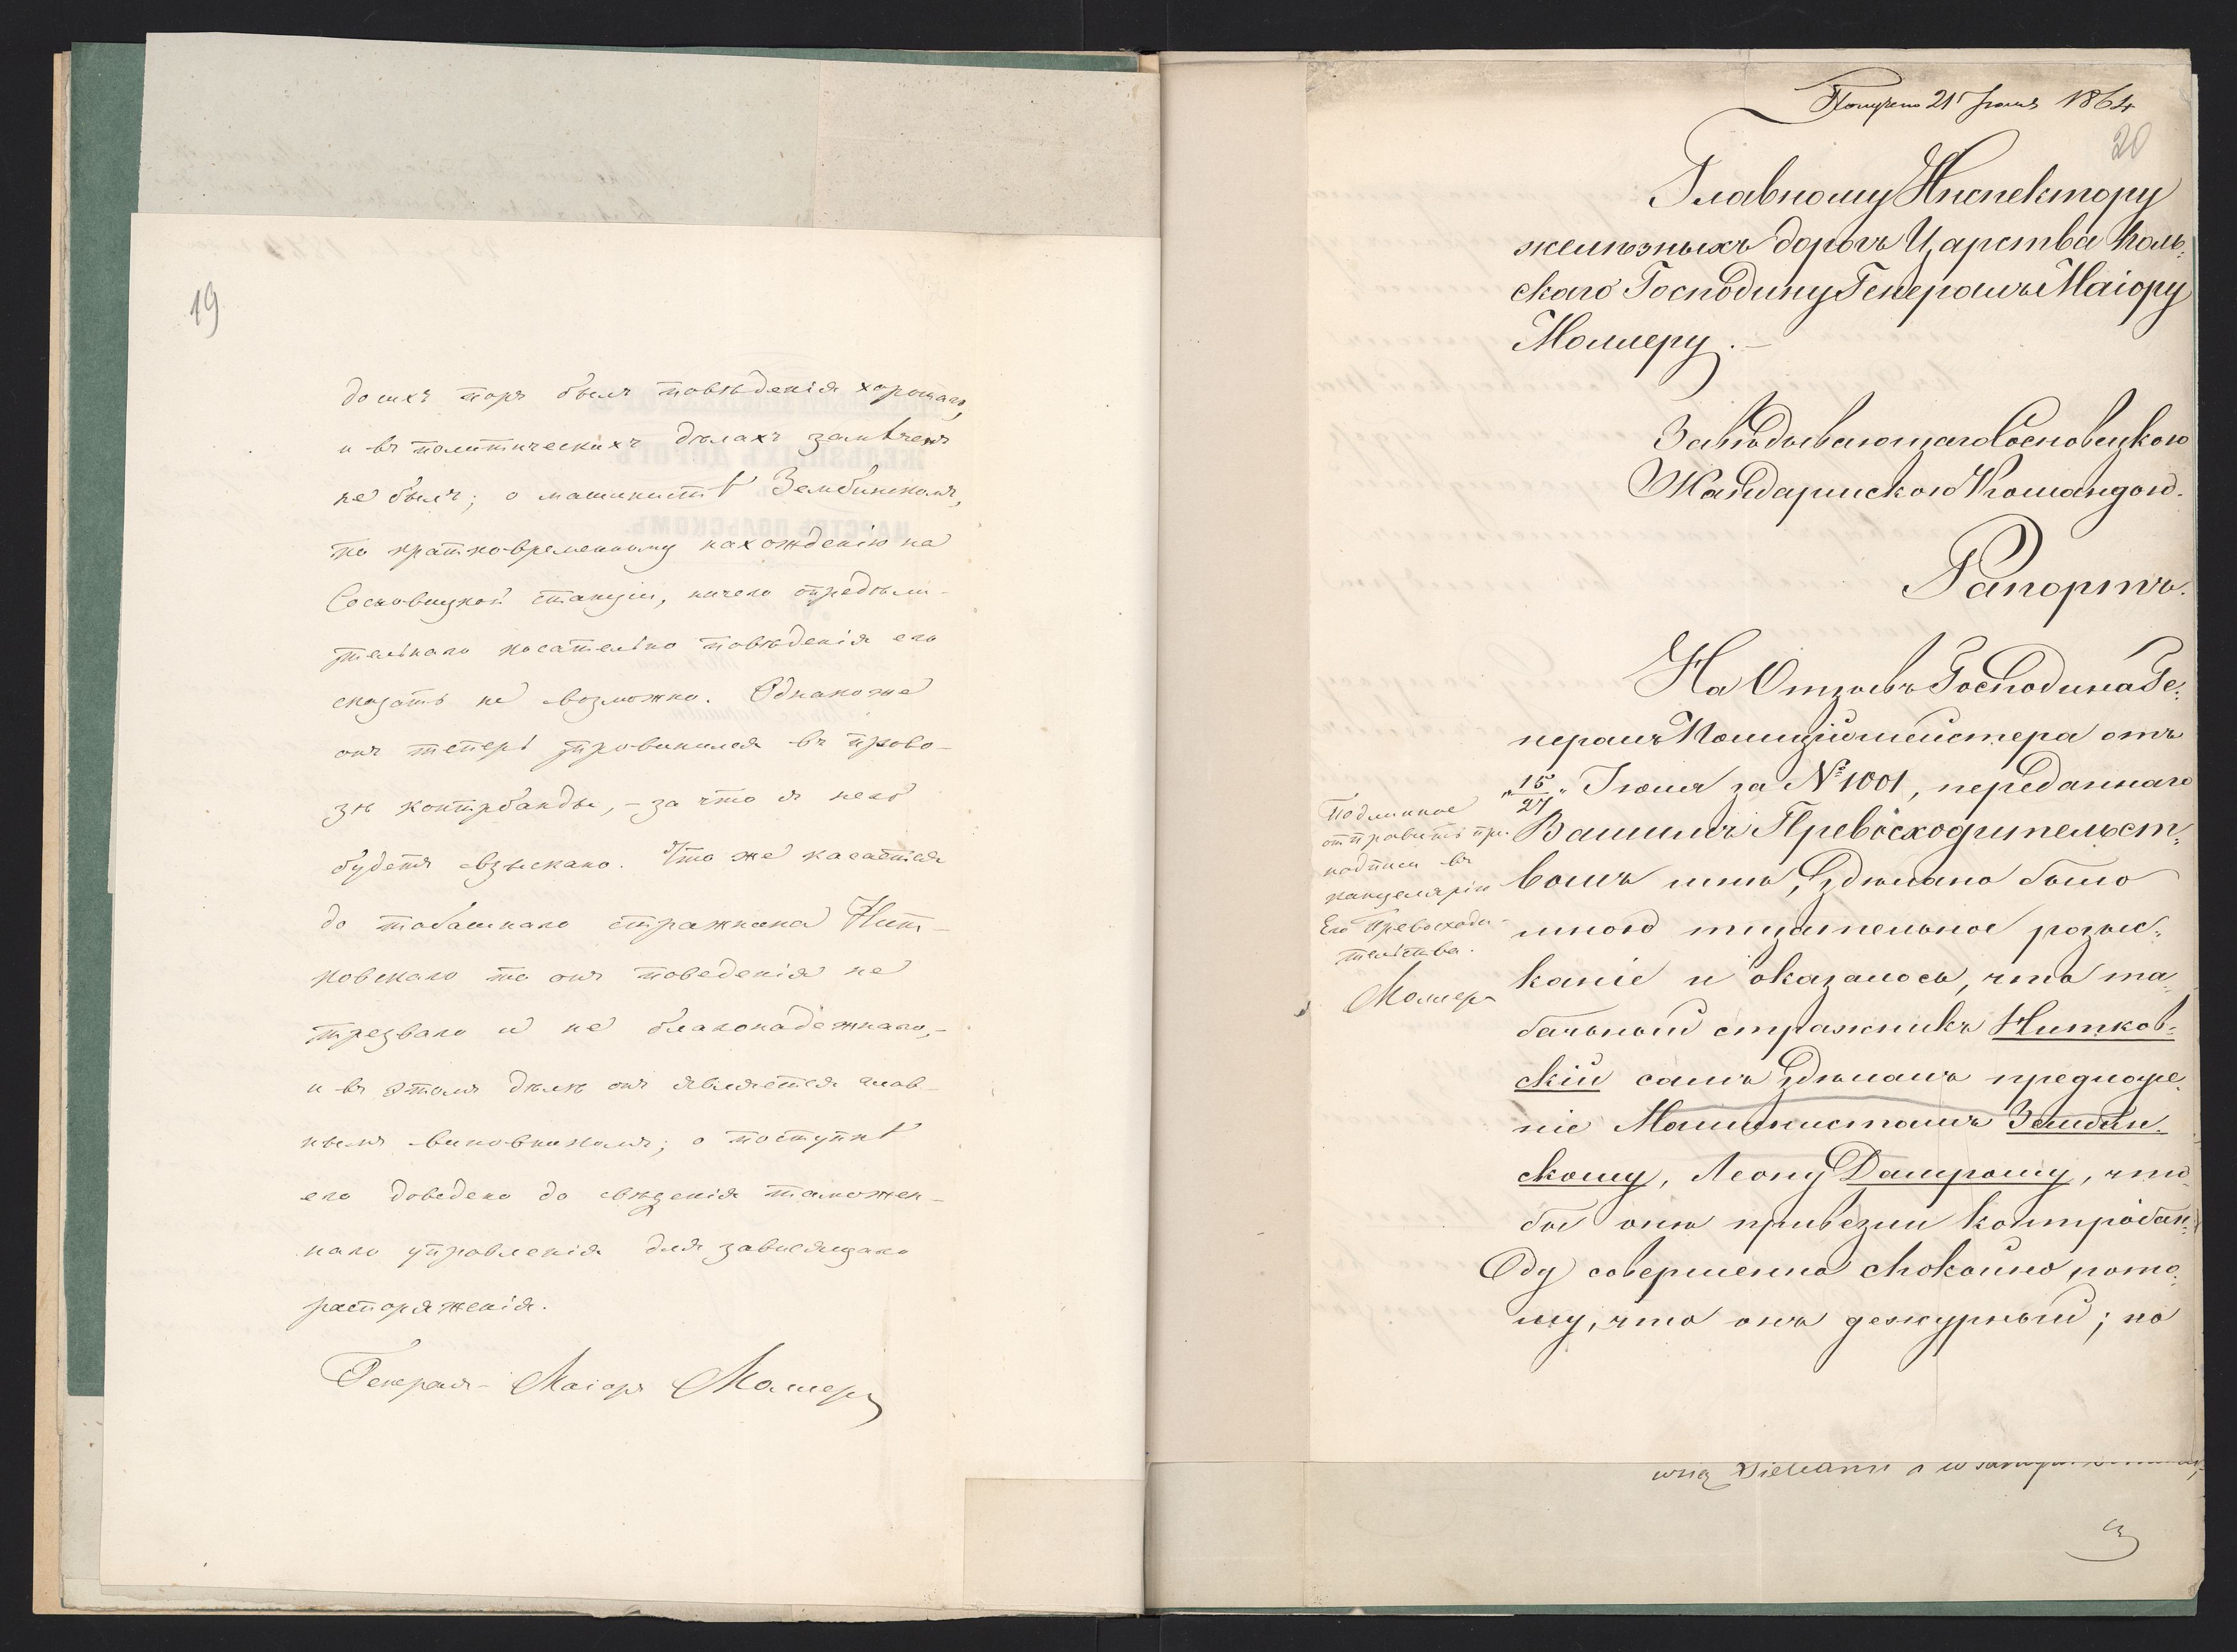 19
до сихъ поръ былъ повѣденія хорошаго,
и въ политическихъ дѣлахъ замѣченъ
не былъ; о машинистѣ Зембинскомъ,
по кратковременному нахожденію на
Сосновицкой станціи, ничего опредѣли-
тельнаго касательно повѣденія его
сказать не возможно. Однакоже
онъ теперь провинился въ прово-
зѣ контрбанды, – за что и него
будетъ взыскано. Что же касается
до табачнаго стражника Нит-
ковскаго то онъ поведенія не
трезваго и не благонадежнаго, –
и въ этомъ дѣлѣ онъ является глав-
нымъ виновникомъ; о поступкѣ
его доведено до свѣденія таможен-
наго управленія для зависящаго
распоряженія.
Генералъ-Маіоръ Моллеръ
Получено 21 1864
20
Главному Инспектору
желѣзныхъ дорогъ Царства Поль-
скаго Господину Генералъ Маіору
Моллеру. –
Завѣдывающаго Сосновецкою
Жандармскою Командою.
Рапортъ.
На Отзывъ Господина Ге-
нералъ Полиціймейстера отъ
„15/27„ Іюля за № 1001, переданнаго
Вашимъ Превосходительст-
вомъ мнѣ, здѣлано было
мною тщательное розыс-
каніе и оказалось, что та-
бачный стражникъ Нитков-
скій самъ здѣлалъ предложе-
ніе Машинистамъ Зембин-
скому, Леону Дамрошу, что-
бы они привезли контробан-
ду совершенно спокойно, пото-
му, что онъ дежурный; но
Подлинное
отправить при
надписи въ
канцелярію
Его Превосходи-
тельства.
Моллеръ